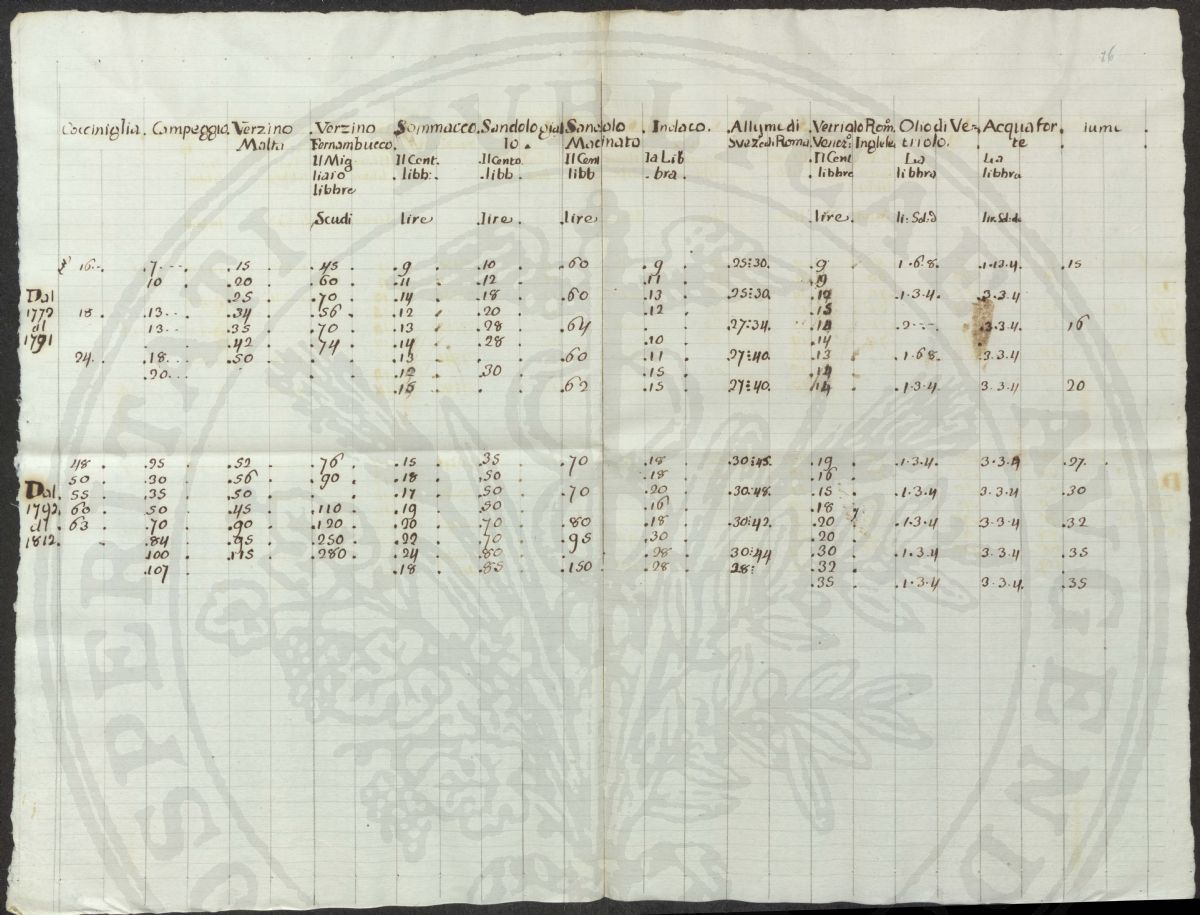 16
Cocciniglia. Campeggio. Verzino Verzino Sommacco. Sandolo gial Sandolo Indaco. Allume di Vetriolo Rom. Olio di Ve- Acqua for
Malta Fernambucco. lo. Macinato Svez. di Roma. Venez. Inglese triolo. te
Il Mig Il Cent. Il Cento Il Cent la Lib Il Cent La La
liaio libb: libb. libb bra. libbre libbra libbra
libbre
Scudi lire lire. lire lire. li: Sol: d lir. Sl: d.
16 7 15 45 9 10 60 9 25:30. 9 1.6.8. 1.13.4. 15
10 20 60 11 12 11 9
Dal 25 70 14 18 60 13 25:30. 12 1.3.4 3.3.4
1772 18. 13 34 56 12 20 12 15
al 13 35 70 13 28 64 27:34. 14 2 3.3.4 16
1791 42 74 14 28 10 14
24. 18 50 13 60 11 27:40. 13 1.6.8. 3.3.4
20 12 30 15 14
15 62 15 27:40. 14 1.3.4 3.3.4 20
48 25 52 76 15 35 70 18 30:45. 19 1.3.4. 3.3.4 27.
50 30 56 90 18 50 18 16
Dal. 55 35 50 17 50 70 20 30:48. 15 1.3.4 3.3.4. 30
1792. 60 50 45 110 19 50 16 18
al 63 70 90 120 20 70 80 18 30:42. 20 1.3.4 3.3.4 32
1812. 84 95 250 22 70 95 30 20
100 115 280 24 80 28 30:44 30 1.3.4 3.3.4 35
107 18 85 150 28 28: 32
35 1.3.4 3.3.4. 35